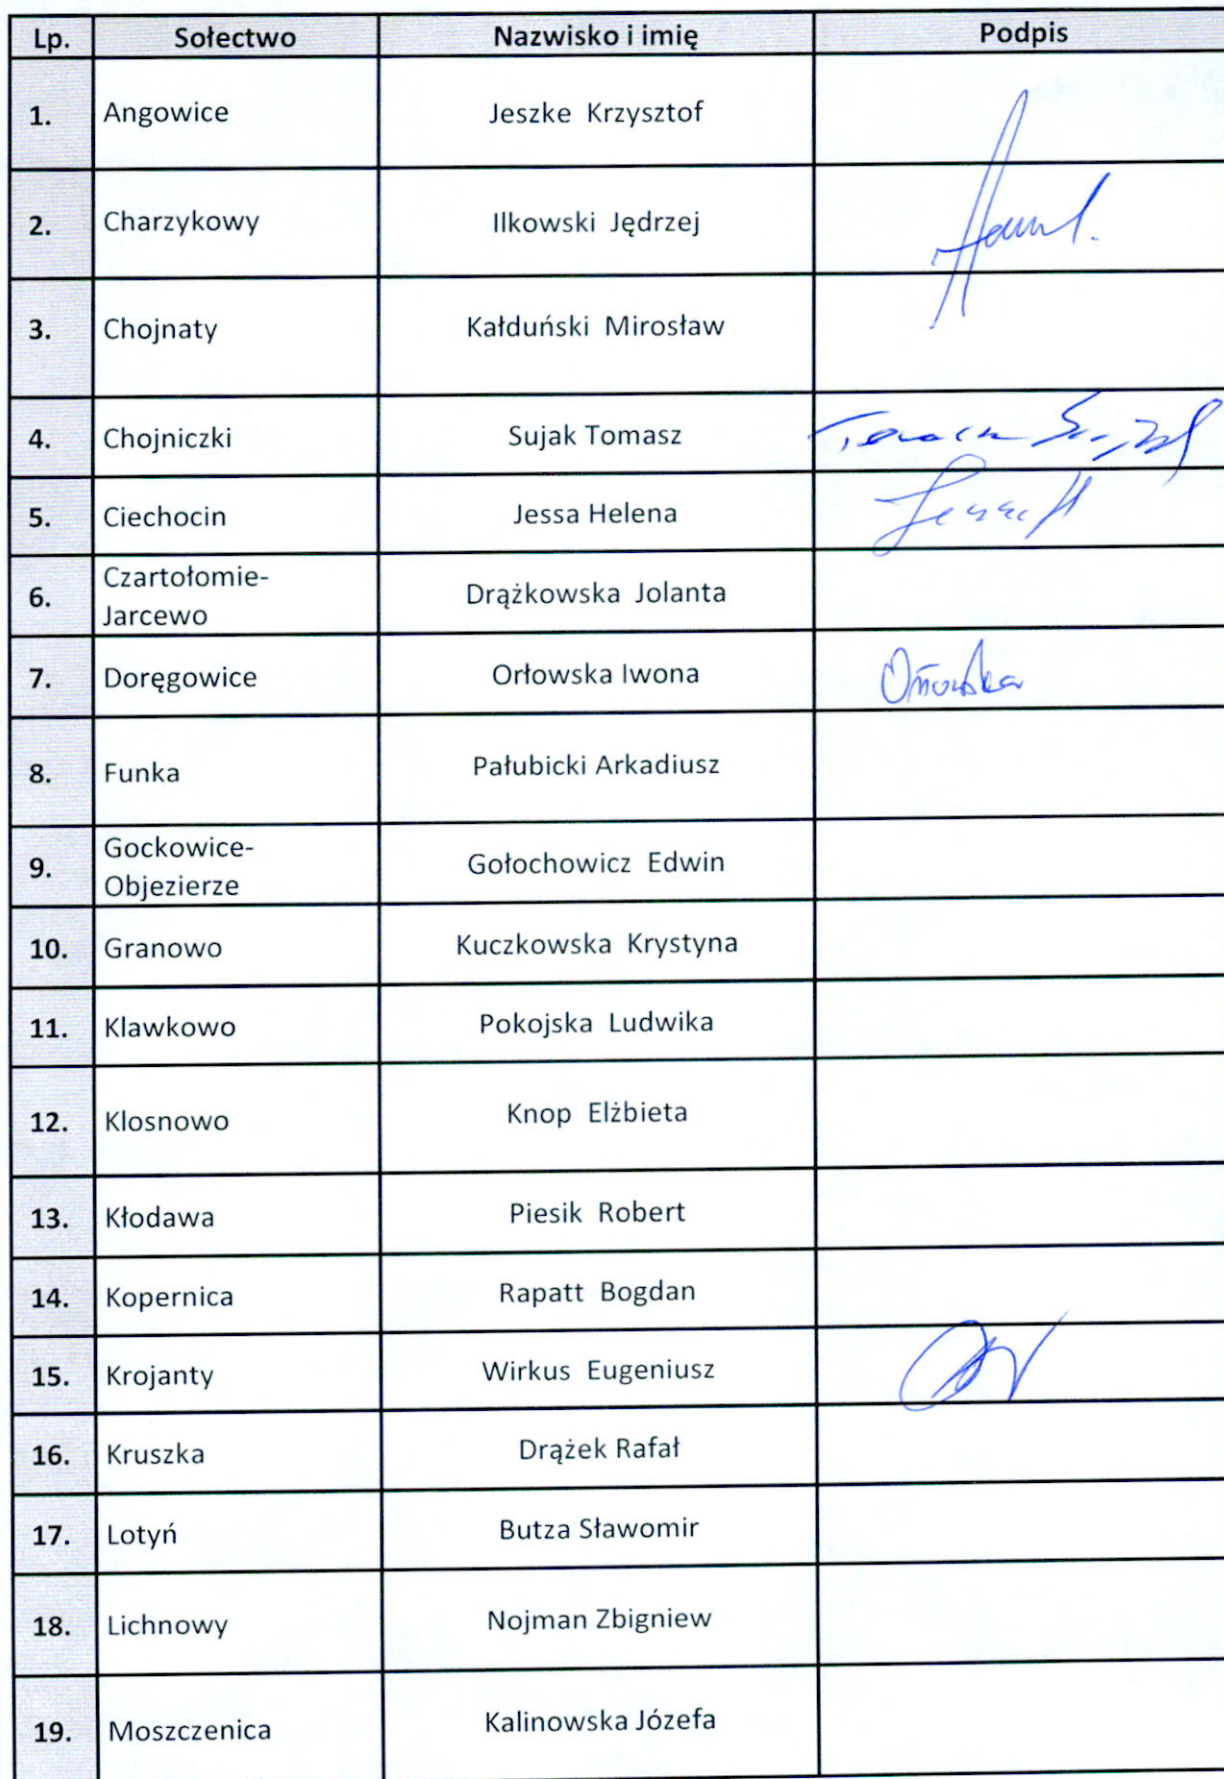 Lp. Sołectwo Nazwisko i imię Podpis
1. Angowice Jeszke Krzysztof
2. Charzykowy Ilkowski Jędrzej
3. Chojnaty Kałduński Mirosław
4. Chojniczki Sujak Tomasz
5. Ciechocin Jessa Helena
6. Czartołomie-
Jarcewo Drążkowska Jolanta
7. Doręgowice Orłowska Iwona Orłowska
8. Funka Pałubicki Arkadiusz
9. Gockowice-
Objezierze Gołochowicz Edwin
10. Granowo Kuczkowska Krystyna
11. Klawkowo Pokojska Ludwika
12. Klosnowo Knop Elżbieta
13. Kłodawa Piesik Robert
14. Kopernica Rapatt Bogdan
15. Krojanty Wirkus Eugeniusz
16. Kruszka Drążek Rafał
17. Lotyń Butza Sławomir
18. Lichnowy Nojman Zbigniew
19. Moszczenica Kalinowska Józefa